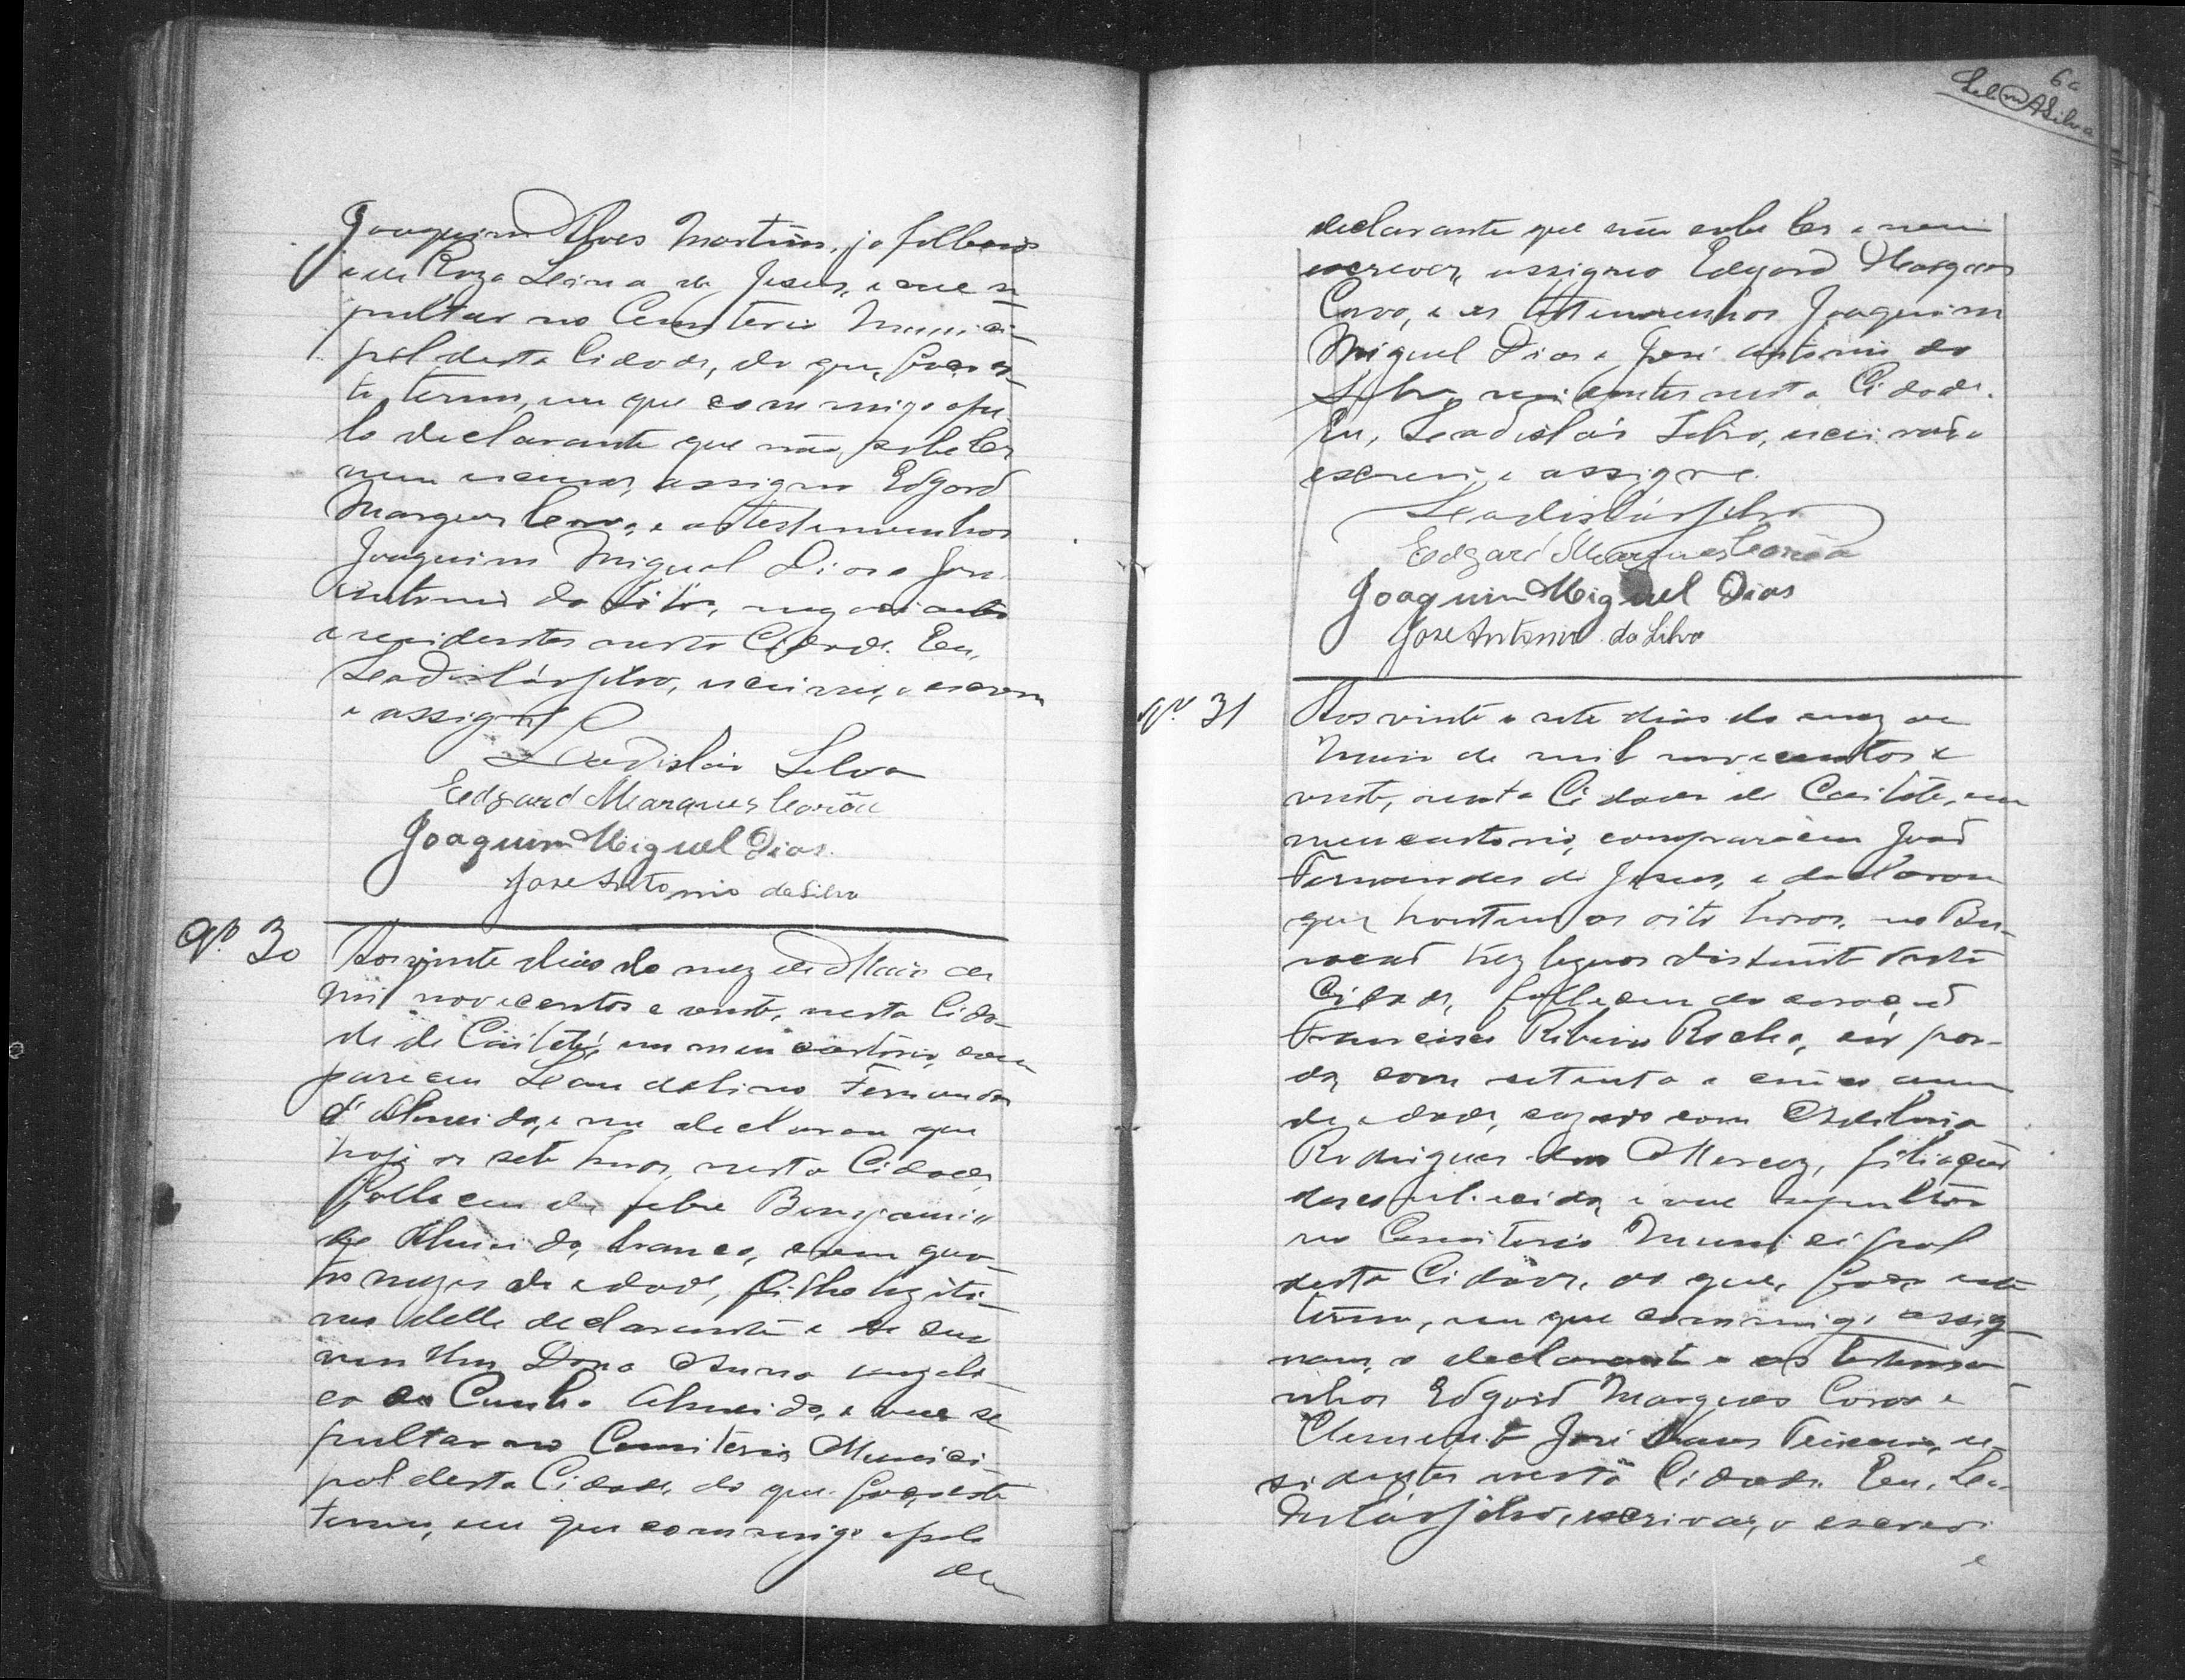 Joaquim Alves Martins, ja fallecido
e de Roza Leina de Jesus, e vae se
pultar no Cemiterio Munici-
pal desta Cidade, do que, faço es-
te termo, em que commigo e pe-
lo declarante que não sabe ler
nem escrever, assigna Edgard
Marques e as testemunhas
Joaquim Miguel Dias e José
Antonio da Silva, negociantes
e residentes nesta Cidade. Eu,
Leadislás Silva, escrivão, o escrevi
e assigno.
Leadislás Silva
Edgard Marques
Joaquim Miguel Dias
José Antonio da Silva
Nº 30
Aos vinte dias do mez de Maio de
mil novecentos e vinte, nesta Cida-
de de Caiteté, em meu cartorio, com
pareceu Leandolino Fernandes
d'Almeida, e me declarou que
hoje as sete horas, nesta Cidade,
falleceu de febre Benjamin
de Almeida, branco, com qua-
tro mezes de edade, filho legiti-
mo delle declarante e de sua
mulher Dona Anna Angeli-
ca da Cunha Almeida, e vae se
pultar no Cemiterio Munici-
pal desta Cidade, do que faço este
termo, em que commigo e pelo
de
60
Silva
declarante que não sabe ler e nem
escrever, assigna Edgard Marques
e as testemunhas Joaquim
Miguel Dias e José Antonio da
Silva, residentes nesta Cidade.
Eu, Leadislás Silva, escrivão o
escrevi e assigno.
Leadislás Silva
Edgard Marques
Joaquim Miguel Dias
José Antonio da Silva
Nº 31
Aos vinte e sete dias do mez de
Maio de mil novecentos e
vinte, nesta Cidade de Caiteté, em
meu cartorio, compareceu João
Fernandes de Jesus, e declarou
que hontem as oito horas, no Bu-
racão trez leguas distante desta
Cidade, falleceu do coração
Francisco Ribeiro Rocha, côr par-
da, com setenta e cinco annos
de edade, cazado com
Rodrigues das Mercez, filiação
desconhecida, e vae sepultar
no Cemiterio Municipal
desta Cidade, do que, faço este
termo, em que commigo assig-
nam, o declarante e as testemu-
nhas Edgard Marques e
Clemente José Teixeira, re-
sidentes nesta Cidade. Eu, Lea-
dislás Silva, escrivão, o escrevi
e